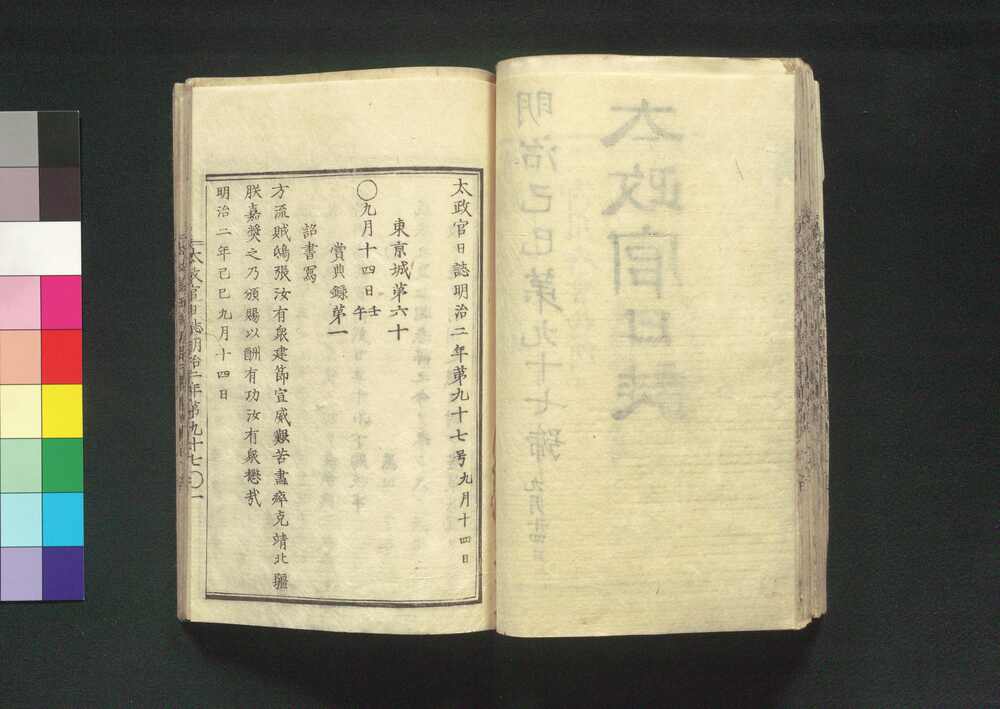 太政官日誌
明治己巳第九十七號 九月十四日
太政官日誌明治二年第九十七号九月十四日
東京城第六十
〇九月十四日壬午
賞典録第一
詔書寫
方流賊鴟張汝有衆建節宣威艱苦盡瘁克靖北疆
朕嘉奬之乃頒賜以酬有功汝有衆懋哉
明治二年己巳九月十四日
太政官日誌明治二年第九十七〇一